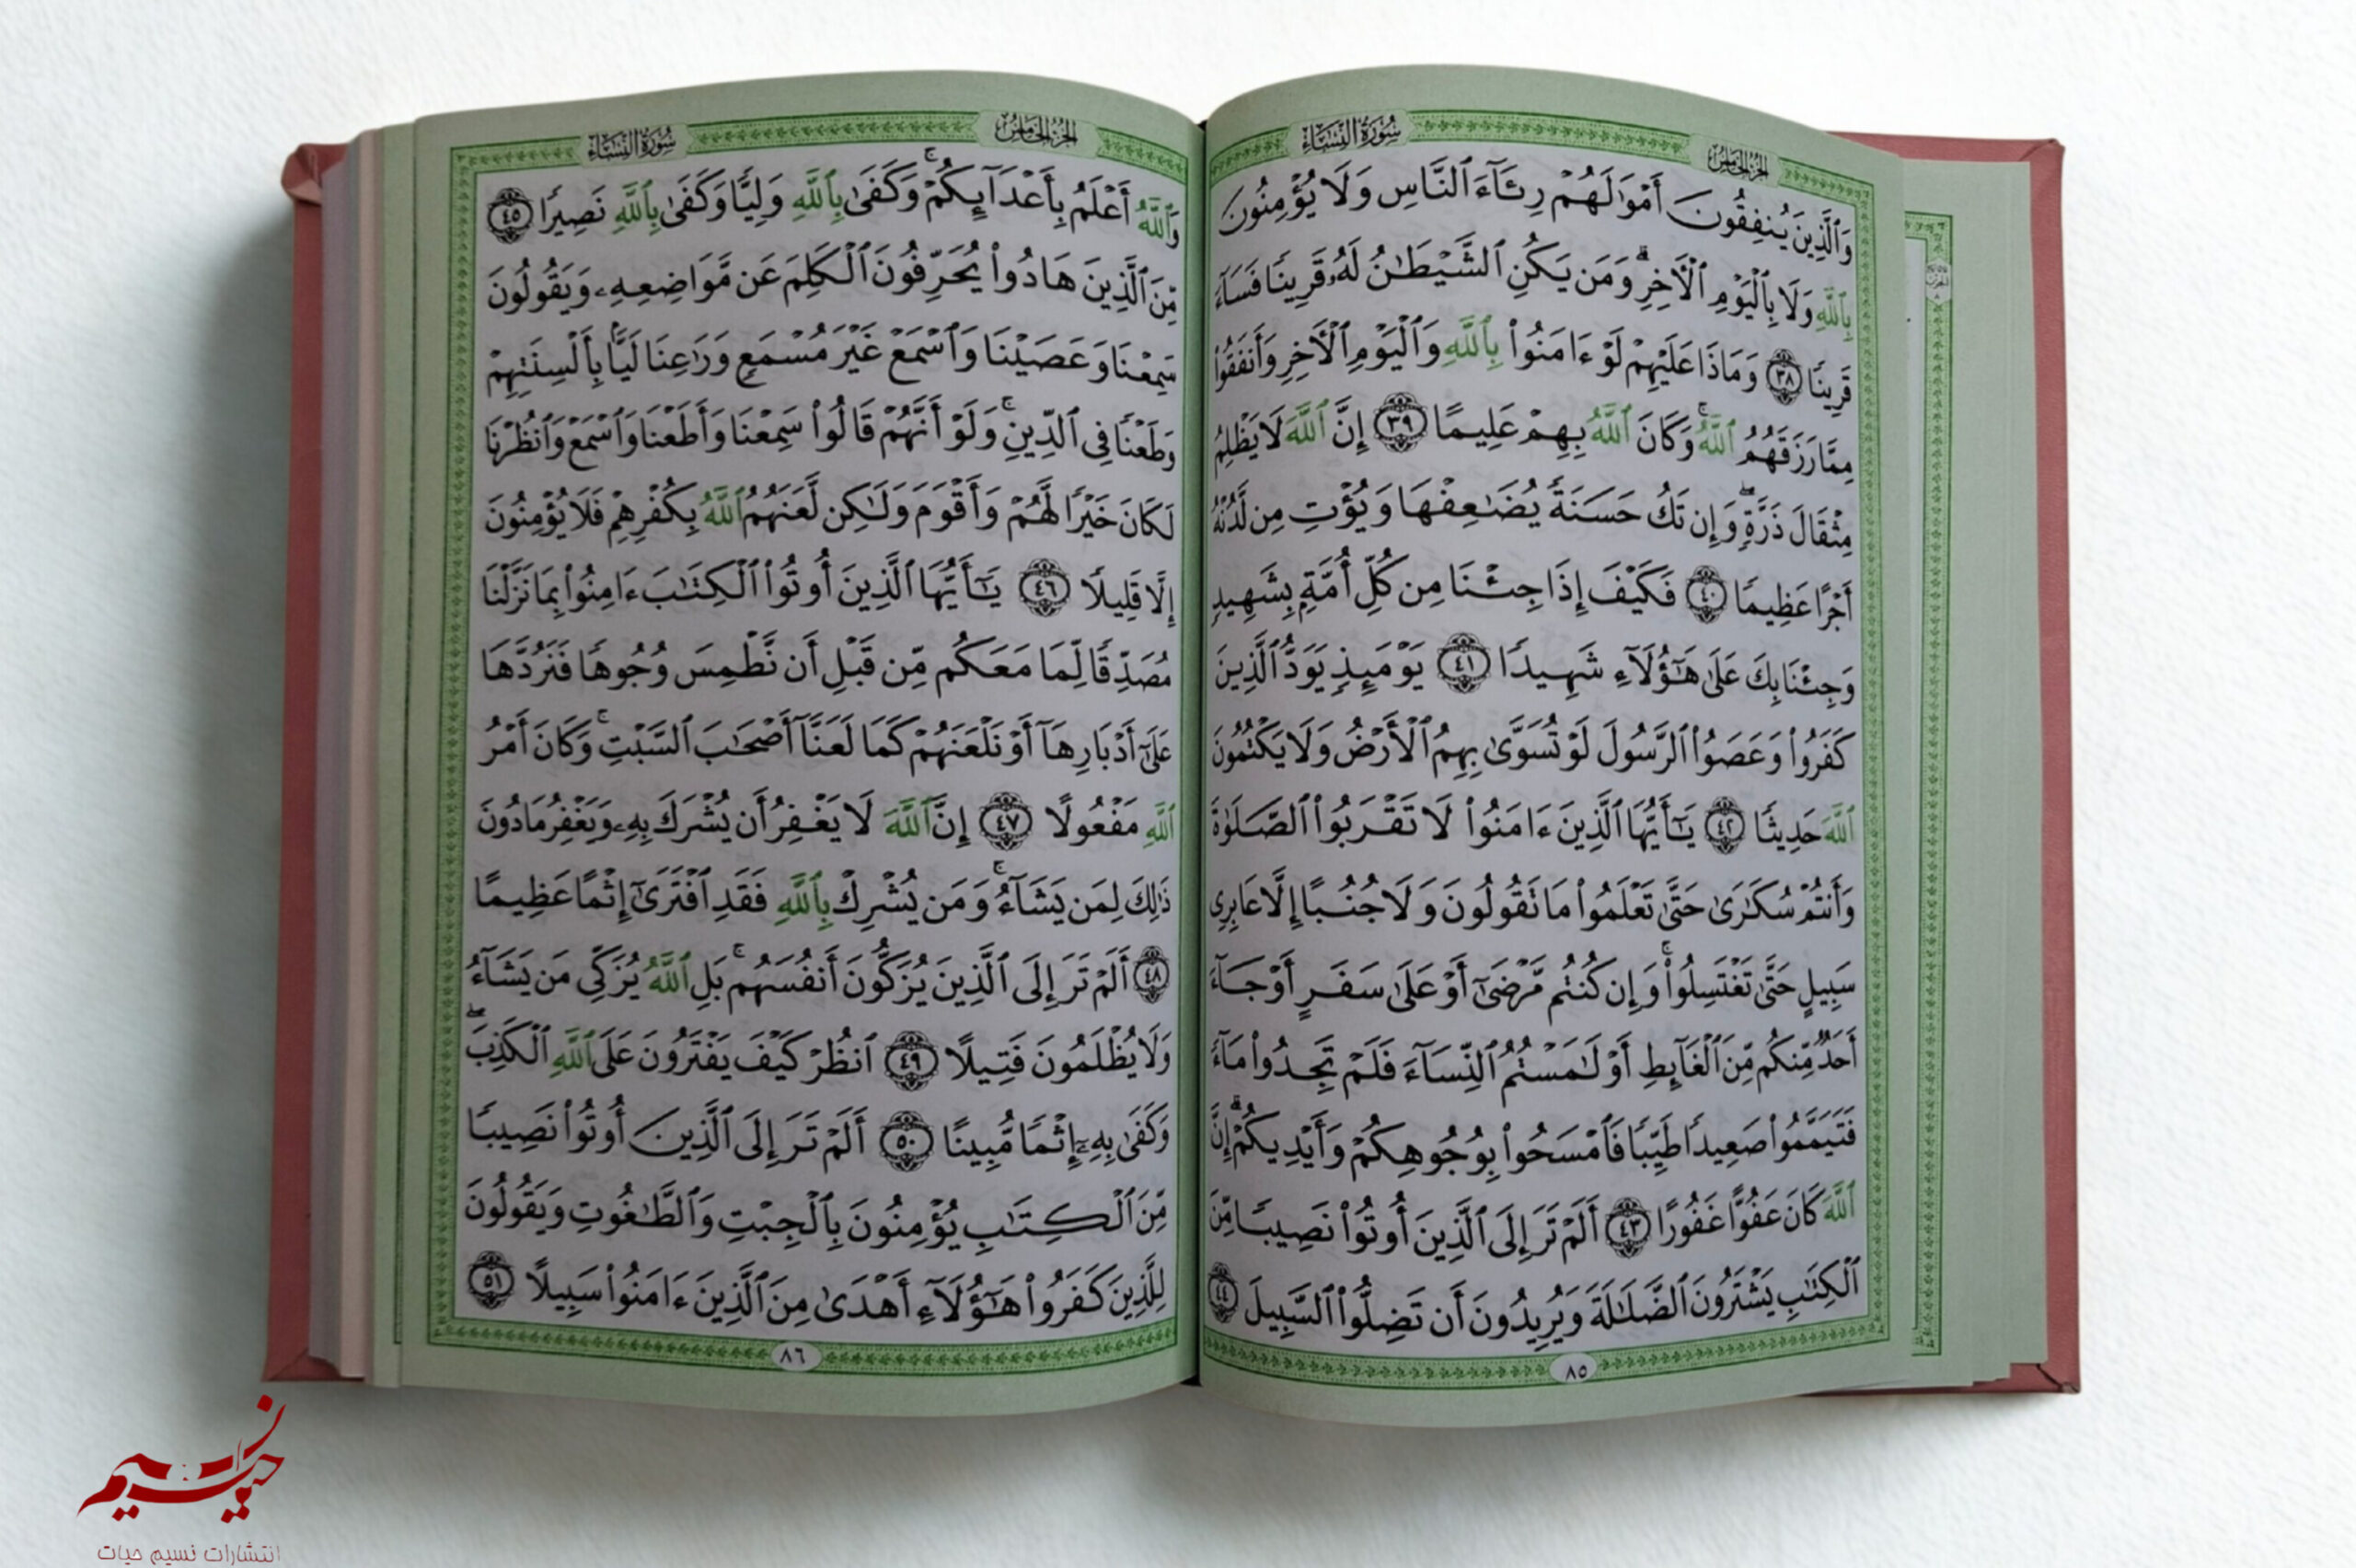 الجزء الخامس
سورة النساء
وَٱلَّذِينَ يُنفِقُونَ أَمْوَٰلَهُمْ رِئَآءَ ٱلنَّاسِ وَلَا يُؤْمِنُونَ
بِٱللَّهِ وَلَا بِٱلْيَوْمِ ٱلْأَخِرِ ۗ وَمَن يَكُنِ ٱلشَّيْطَٰنُ لَهُۥ قَرِينًا فَسَآءَ
قَرِينًا ٣٨ وَمَاذَا عَلَيْهِمْ لَوْ ءَامَنُوا۟ بِٱللَّهِ وَٱلْيَوْمِ ٱلْأَخِرِ وَأَنفَقُوا۟
مِمَّا رَزَقَهُمُ ٱللَّهُ ۚ وَكَانَ ٱللَّهُ بِهِمْ عَلِيمًا ٣٩ إِنَّ ٱللَّهَ لَا يَظْلِمُ
مِثْقَالَ ذَرَّةٍ ۖ وَإِن تَكُ حَسَنَةً يُضَٰعِفْهَا وَيُؤْتِ مِن لَّدُنْهُ
أَجْرًا عَظِيمًا ٤٠ فَكَيْفَ إِذَا جِئْنَا مِن كُلِّ أُمَّةٍۭ بِشَهِيدٍ
وَجِئْنَا بِكَ عَلَىٰ هَٰٓؤُلَآءِ شَهِيدًا ٤١ يَوْمَئِذٍ يَوَدُّ ٱلَّذِينَ
كَفَرُوا۟ وَعَصَوُا۟ ٱلرَّسُولَ لَوْ تُسَوَّىٰ بِهِمُ ٱلْأَرْضُ وَلَا يَكْتُمُونَ
ٱللَّهَ حَدِيثًا ٤٢ يَٰٓأَيُّهَا ٱلَّذِينَ ءَامَنُوا۟ لَا تَقْرَبُوا۟ ٱلصَّلَوٰةَ
وَأَنتُمْ سُكَٰرَىٰ حَتَّىٰ تَعْلَمُوا۟ مَا تَقُولُونَ وَلَا جُنُبًا إِلَّا عَابِرِى
سَبِيلٍ حَتَّىٰ تَغْتَسِلُوا۟ ۚ وَإِن كُنتُم مَّرْضَىٰٓ أَوْ عَلَىٰ سَفَرٍ أَوْ جَآءَ
أَحَدٌ مِّنكُم مِّنَ ٱلْغَآئِطِ أَوْ لَٰمَسْتُمُ ٱلنِّسَآءَ فَلَمْ تَجِدُوا۟ مَآءً
فَتَيَمَّمُوا۟ صَعِيدًا طَيِّبًا فَٱمْسَحُوا۟ بِوُجُوهِكُمْ وَأَيْدِيكُمْ ۗ إِنَّ
ٱللَّهَ كَانَ عَفُوًّا غَفُورًا ٤٣ أَلَمْ تَرَ إِلَى ٱلَّذِينَ أُوتُوا۟ نَصِيبًا مِّنَ
ٱلْكِتَٰبِ يَشْتَرُونَ ٱلضَّلَٰلَةَ وَيُرِيدُونَ أَن تَضِلُّوا۟ ٱلسَّبِيلَ ٤٤
٨٥
الجزء الخامس
سورة النساء
وَٱللَّهُ أَعْلَمُ بِأَعْدَآئِكُمْ ۚ وَكَفَىٰ بِٱللَّهِ وَلِيًّا وَكَفَىٰ بِٱللَّهِ نَصِيرًا ٤٥
مِّنَ ٱلَّذِينَ هَادُوا۟ يُحَرِّفُونَ ٱلْكَلِمَ عَن مَّوَاضِعِهِۦ وَيَقُولُونَ
سَمِعْنَا وَعَصَيْنَا وَٱسْمَعْ غَيْرَ مُسْمَعٍ وَرَٰعِنَا لَيًّۢا بِأَلْسِنَتِهِمْ
وَطَعْنًا فِى ٱلدِّينِ ۚ وَلَوْ أَنَّهُمْ قَالُوا۟ سَمِعْنَا وَأَطَعْنَا وَٱسْمَعْ وَٱنظُرْنَا
لَكَانَ خَيْرًا لَّهُمْ وَأَقْوَمَ وَلَٰكِن لَّعَنَهُمُ ٱللَّهُ بِكُفْرِهِمْ فَلَا يُؤْمِنُونَ
إِلَّا قَلِيلًا ٤٦ يَٰٓأَيُّهَا ٱلَّذِينَ أُوتُوا۟ ٱلْكِتَٰبَ ءَامِنُوا۟ بِمَا نَزَّلْنَا
مُصَدِّقًا لِّمَا مَعَكُم مِّن قَبْلِ أَن نَّطْمِسَ وُجُوهًا فَنَرُدَّهَا
عَلَىٰٓ أَدْبَارِهَآ أَوْ نَلْعَنَهُمْ كَمَا لَعَنَّآ أَصْحَٰبَ ٱلسَّبْتِ ۚ وَكَانَ أَمْرُ
ٱللَّهِ مَفْعُولًا ٤٧ إِنَّ ٱللَّهَ لَا يَغْفِرُ أَن يُشْرَكَ بِهِۦ وَيَغْفِرُ مَا دُونَ
ذَٰلِكَ لِمَن يَشَآءُ ۚ وَمَن يُشْرِكْ بِٱللَّهِ فَقَدِ ٱفْتَرَىٰٓ إِثْمًا عَظِيمًا
٤٨ أَلَمْ تَرَ إِلَى ٱلَّذِينَ يُزَكُّونَ أَنفُسَهُم ۚ بَلِ ٱللَّهُ يُزَكِّى مَن يَشَآءُ
وَلَا يُظْلَمُونَ فَتِيلًا ٤٩ ٱنظُرْ كَيْفَ يَفْتَرُونَ عَلَى ٱللَّهِ ٱلْكَذِبَ ۖ
وَكَفَىٰ بِهِۦٓ إِثْمًا مُّبِينًا ٥٠ أَلَمْ تَرَ إِلَى ٱلَّذِينَ أُوتُوا۟ نَصِيبًا
مِّنَ ٱلْكِتَٰبِ يُؤْمِنُونَ بِٱلْجِبْتِ وَٱلطَّٰغُوتِ وَيَقُولُونَ
لِلَّذِينَ كَفَرُوا۟ هَٰٓؤُلَآءِ أَهْدَىٰ مِنَ ٱلَّذِينَ ءَامَنُوا۟ سَبِيلًا ٥١
٨٦
نسیم حیات
انتشارات نسیم حیات